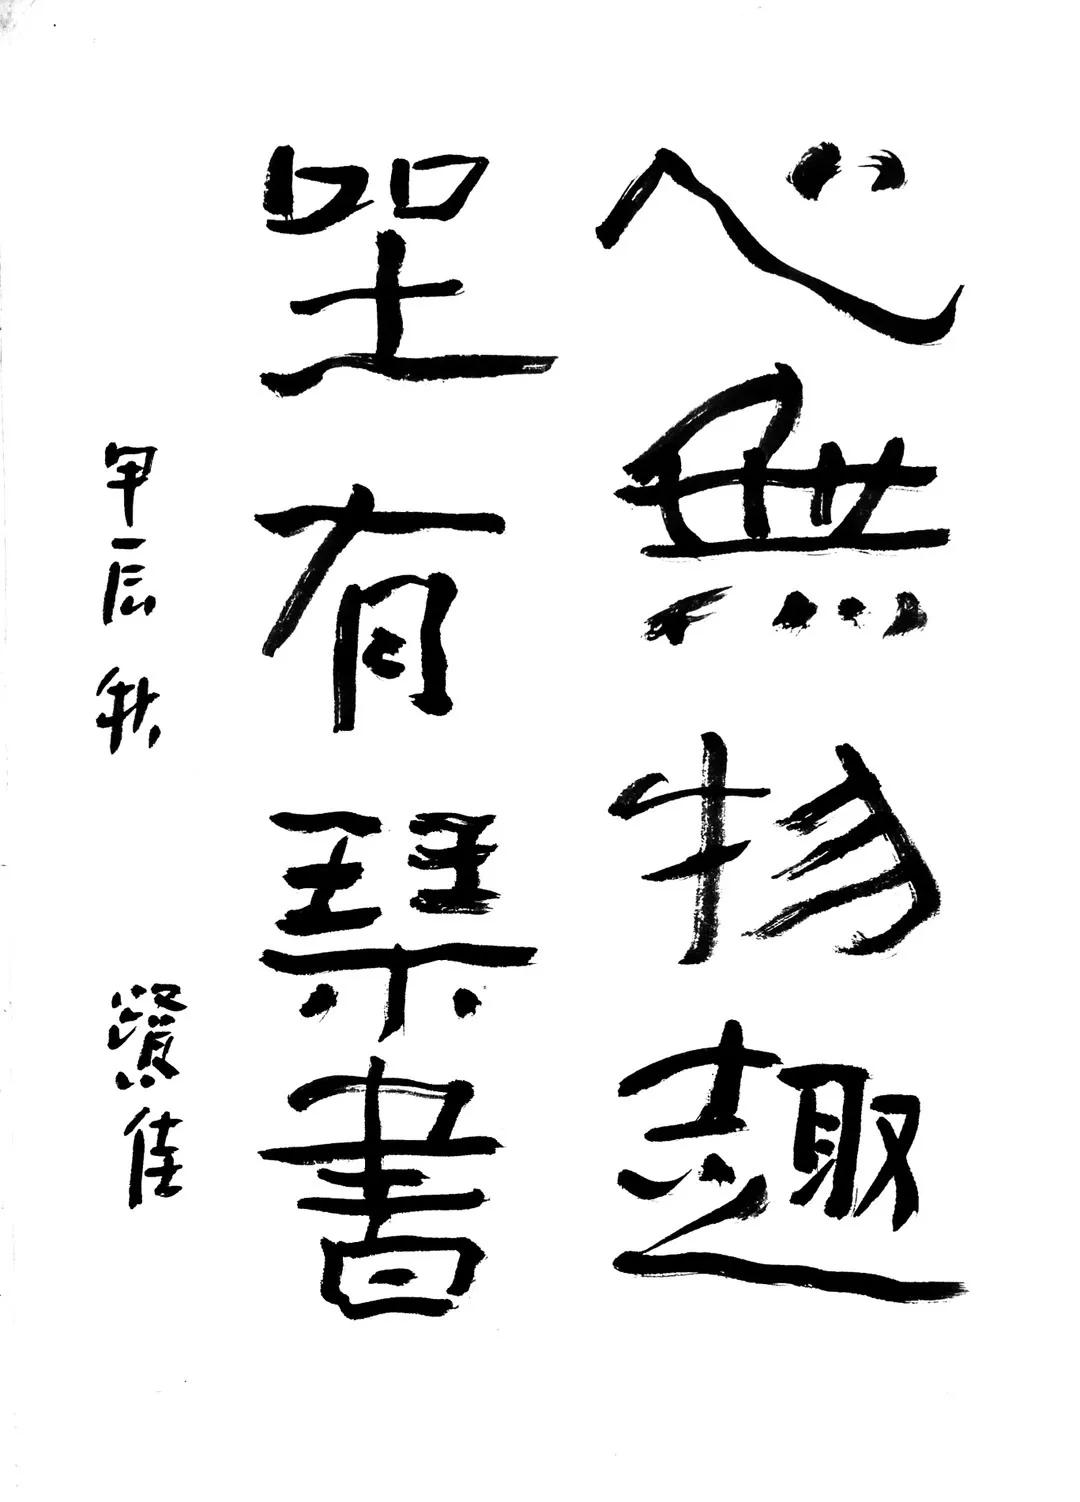 心無物趣
坐有琴書
甲辰秋 賢佳